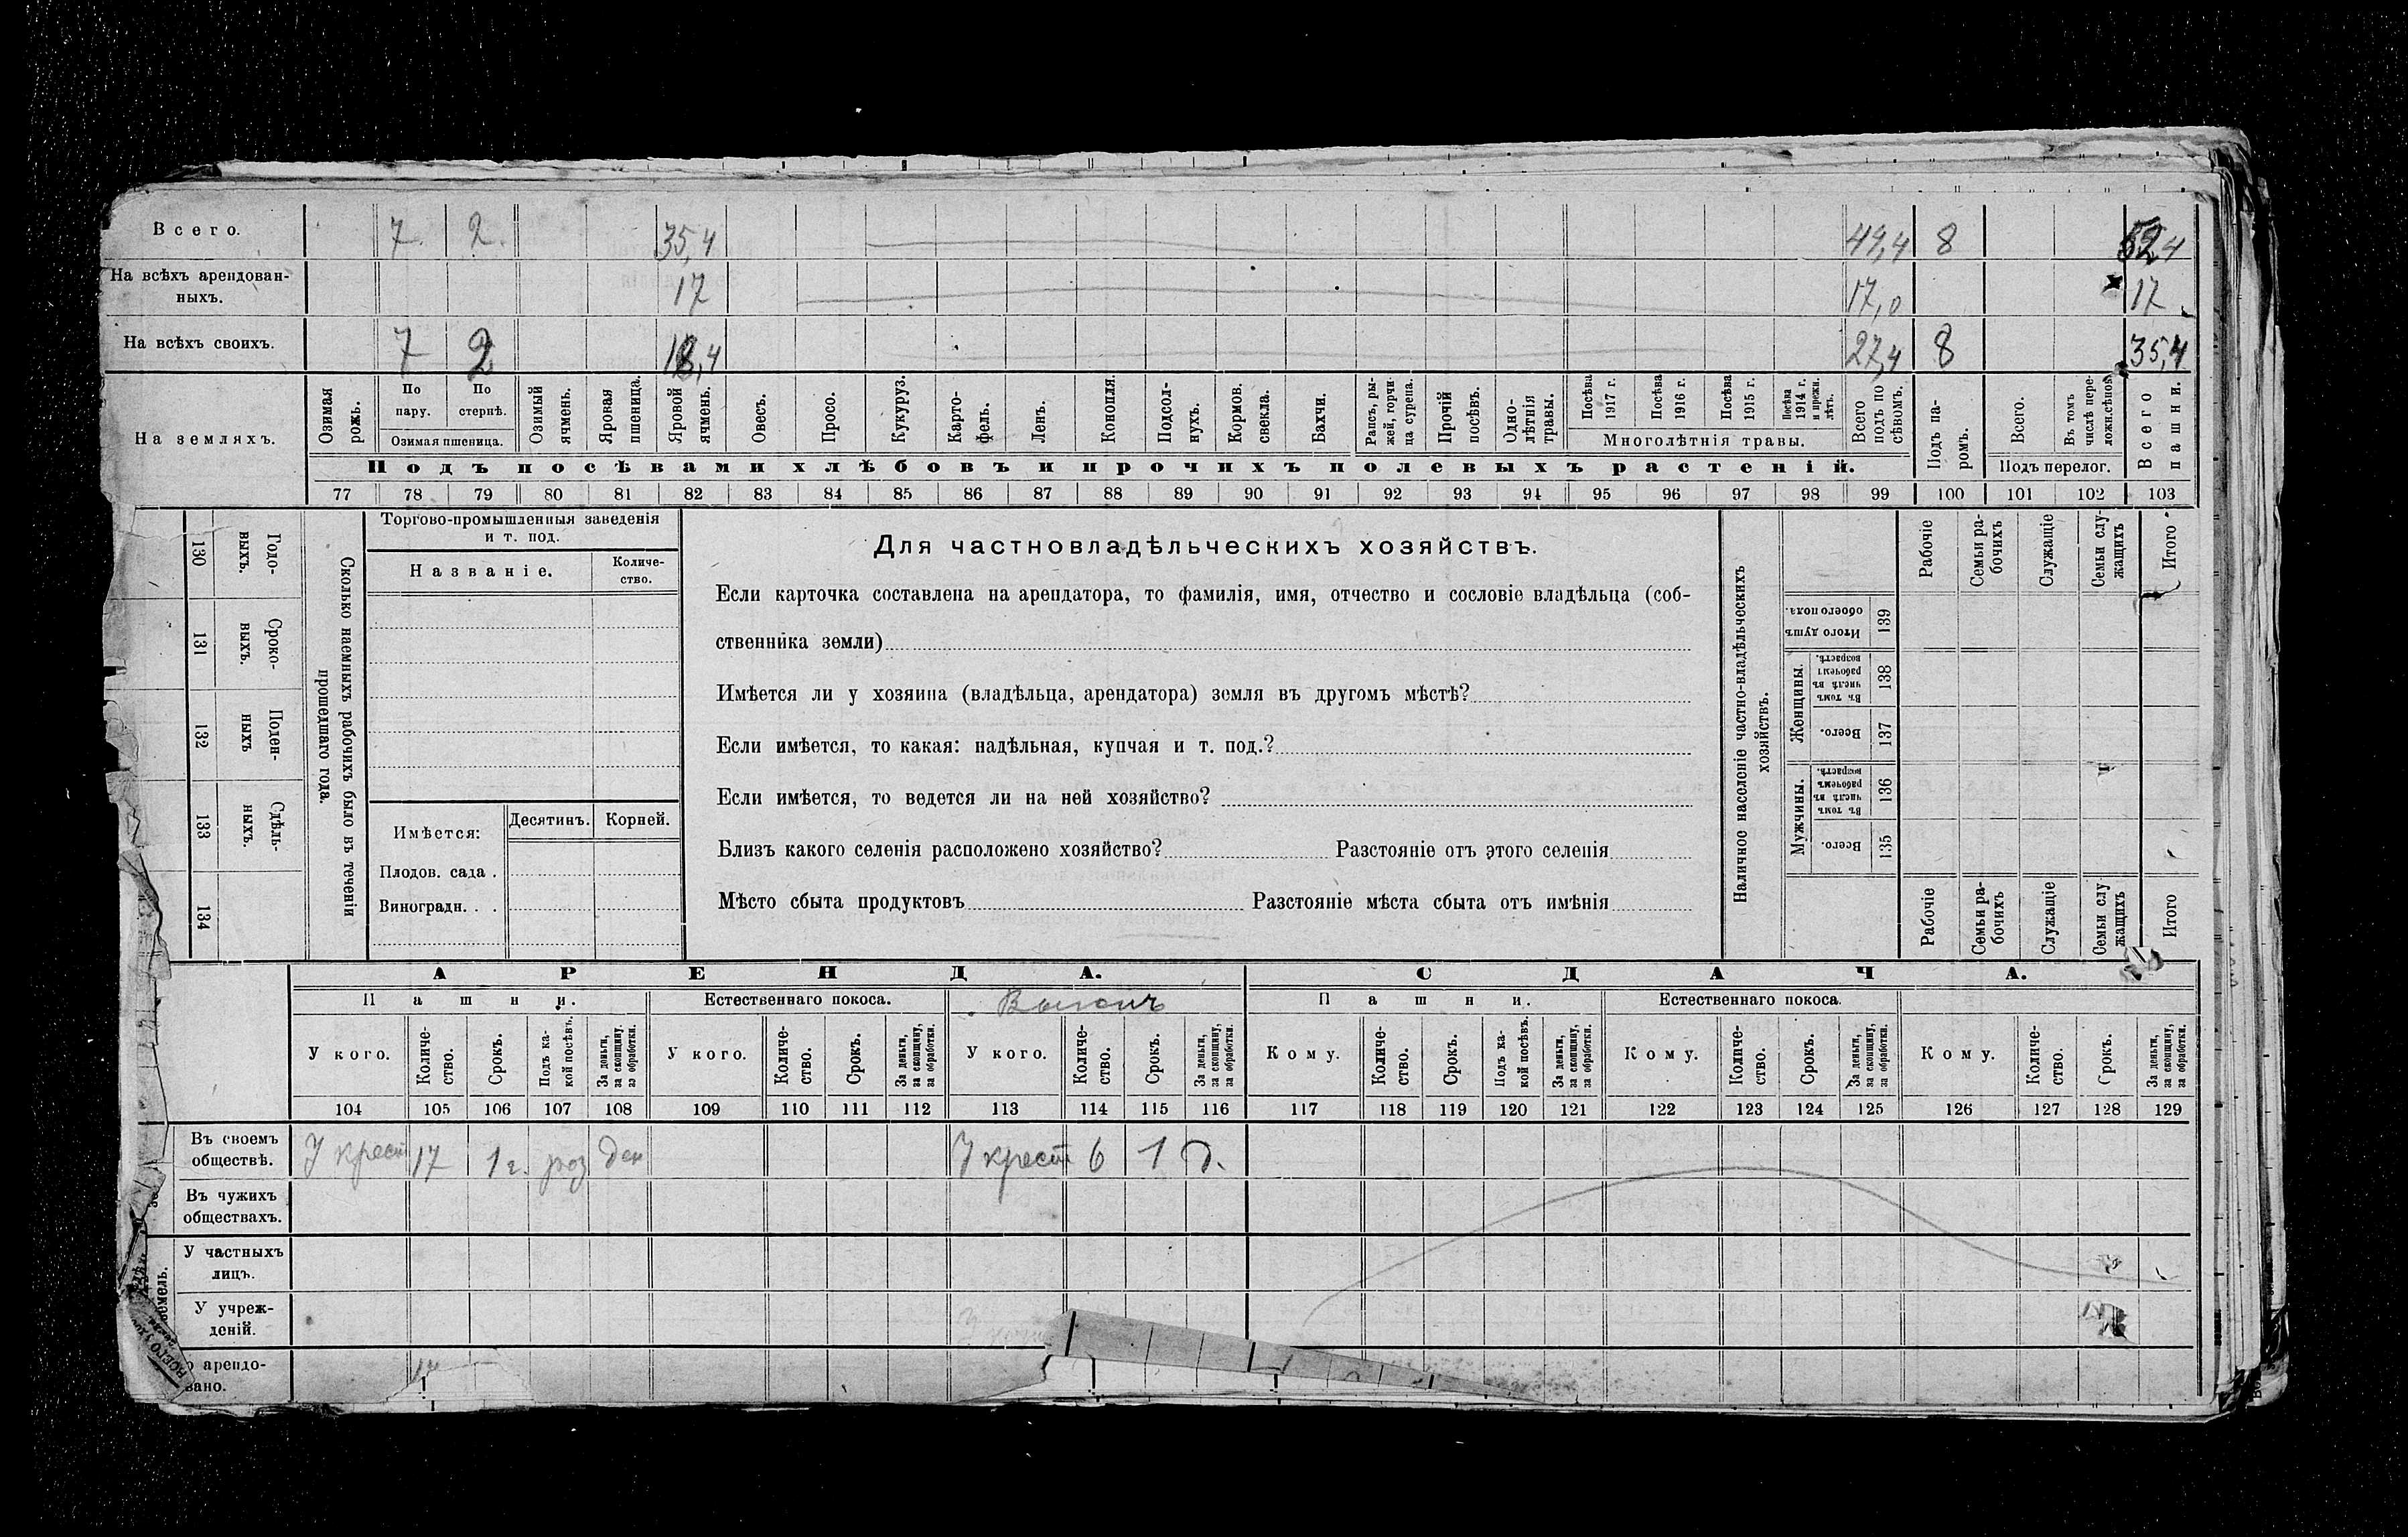 Всего. 7. 2. 35,4 44,4 8 52,4
На всѣхъ арендован-
ныхъ. 17 17,0 17
На всѣхъ своихъ. 7 2 18,4 27,4 8 35,4
На земляхъ.
Озимая рожь.
По пару.
По стернѣ.
Озимая пшеница.
Озимый ячмень.
Яровая пшеница.
Яровой ячмень.
Овесъ.
Просо.
Кукуруз.
Карто-
фель.
Ленъ.
Конопля.
Подсол-
нухъ.
Кормов. свекла.
Бахчи.
Рапсъ, ры-
жей, горчи
ца сурепа.
Прочій посѣвъ.
Одно-
лѣтнія травы.
Посѣва 1917 г.
Посѣва 1916 г.
Посѣва 1915 г.
Посѣва 1914 г. и прежн. лѣтъ.
Многолѣтнія травы.
Всего подъ по
сѣвомъ.
Подъ па-
ромъ.
Всего.
Въ томъ числѣ пере-
ложн.сѣнок.
Подъ перелог.
Всего пашни.
Подъ посѣвами хлѣбовъ и прочихъ полевыхъ растеній.
77 78 79 80 81 82 83 84 85 86 87 88 89 90 91 92 93 94 95 96 97 98 99 100 101 102 103
130 Годо-
выхъ.
131 Сроко-
выхъ.
132 Поден-
ныхъ
133 Сдѣль-
ныхъ.
134
Сколько наемныхъ рабочихъ было въ теченіи
прошедшаго года.
Торгово-промышленныя заведенія
и т. под.
Названіе.
Количе-
ство.
Имѣется:
Десятинъ. Корней.
Плодов. сада .
Виноградн. . .
Для частновладѣльческихъ хозяйствъ.
Если карточка составлена на арендатора, то фамилія, имя, отчество и сословіе владѣльца (соб-
ственника земли)
Имѣется ли у хозяина (владѣльца, арендатора) земля въ другомъ мѣстѣ?
Если имѣется, то какая: надѣльная, купчая и т. под.?
Если имѣется, то ведется ли на ней хозяйство?
Близъ какого селенія расположено хозяйство? Разстояніе отъ этого селенія
Мѣсто сбыта продуктовъ Разстояніе мѣста сбыта отъ имѣнія
Наличное населеніе частно-владѣльческихъ
хозяйствъ.
Рабочіе
Семьи ра-
бочихъ
Служащіе
Семьи слу-
жащихъ
Итого
Итого душъ обоего пола. 139
Женщины.
Въ томъ числѣ въ рабочемъ возрастѣ. 138
Всего. 137
Мужчины.
Въ томъ числѣ въ рабочемъ возрастѣ. 136
Всего. 135
Рабочіе
Семьи ра-
бочихъ
Служащіе
Семьи слу
жащихъ
Итого
АРЕНДА. СДАЧА.
Пашни. Естественнаго покоса. Выгонъ Пашни. Естественнаго покоса.
У кого.
Количе-
ство.
Срокъ.
Подъ ка-
кой посѣвъ.
За деньги, за скопщину. за обработки.
У кого.
Количе-
ство.
Срокъ.
За деньги, за скопщину, за обработки.
У кого.
Количе-
ство.
Срокъ.
За деньги, за скопщину, за обработки.
Кому.
Количе-
ство.
Срокъ.
Подъ ка-
кой посѣвъ.
За деньги, за скопщину, за обработки.
Кому.
Количе-
ство.
Срокъ.
За деньги, за скопщину, за обработки.
Кому.
Количе-
ство.
Срокъ.
За деньги, за скопщину, за обработки.
104 105 106 107 108 109 110 111 112 113 114 115 116 117 118 119 120 121 122 123 124 125 126 127 128 129
Въ своемъ
обществѣ. У крест 17 1 г. роз ден У крест 6 1 д.
Въ чужихъ
обществахъ.
У частныхъ
лицъ.
У учреж-
деній.
арендо-
вано. 17